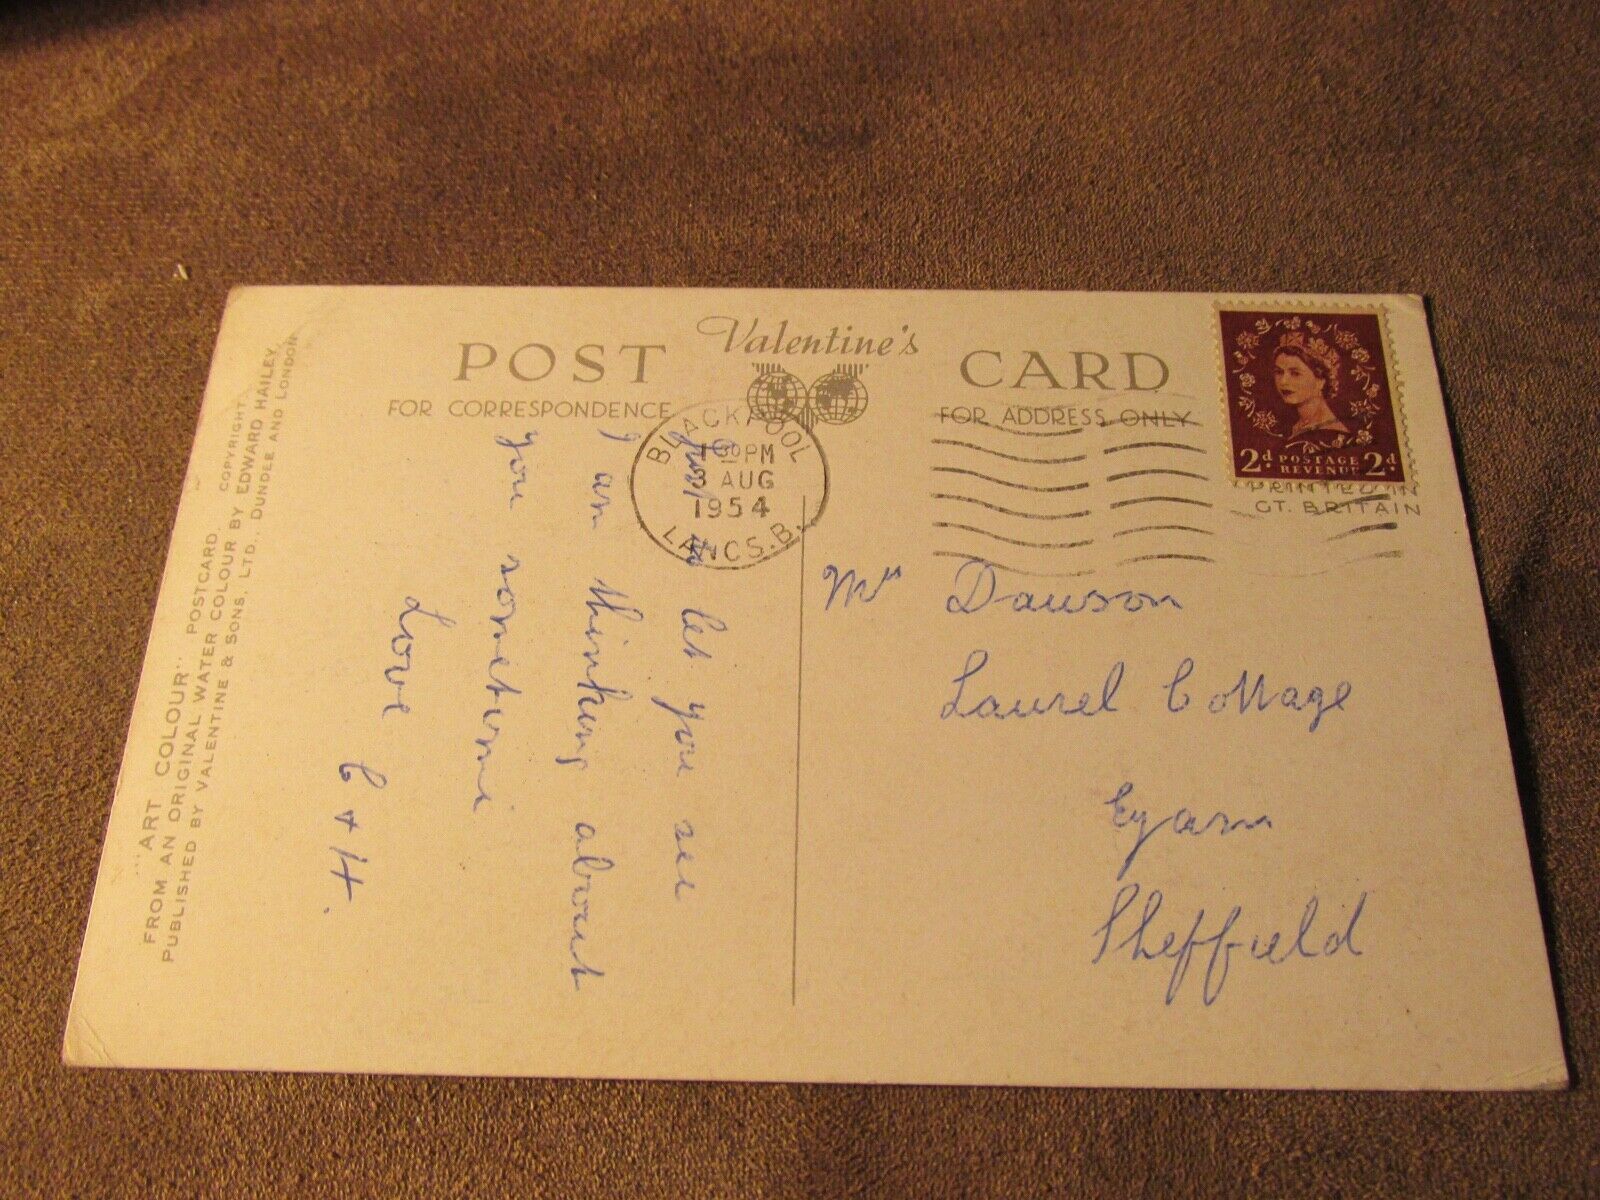 POST Valentine's CARD
FOR CORRESPONDENCE
FOR ADDRESS ONLY
BLACKPOOL
PM
3 AUG
1954
LANCS. B.
2d POSTAGE REVENUE 2d
PRINTED IN
GT. BRITAIN
Just to let you see
I am thinking about
you sometimes
Love
C + H.
Mrs Dawson
Laurel Cottage
Eyam
Sheffield
"ART COLOUR" POSTCARD. COPYRIGHT.
FROM AN ORIGINAL WATER COLOUR BY EDWARD HAILEY.
PUBLISHED BY VALENTINE & SONS, LTD., DUNDEE AND LONDON